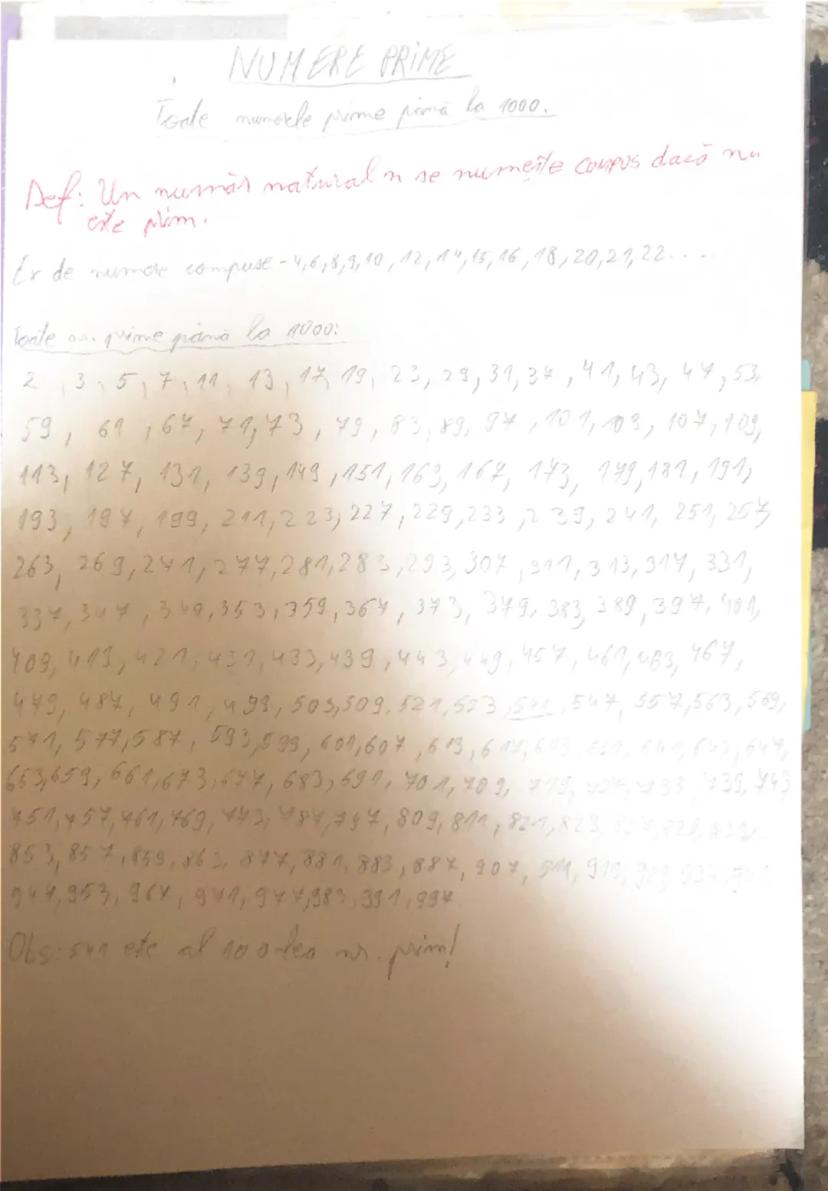 NUMERE PRIME
Toate numerele prime până la 1000.
Def: Un număr natural n se numește compus dacă nu
este prim.
Ex de numere compuse - 4,6,8,9,10,12,14,15,16,18,20,21,22....
Toate nr. prime până la 1000:
2, 3, 5, 7, 11, 13, 17, 19, 23, 29, 31, 37, 41, 43, 47, 53,
59, 61, 67, 71, 73, 79, 83, 89, 97, 101, 103, 107, 109,
113, 127, 131, 139, 149, 151, 163, 167, 173, 179, 181, 191,
193, 197, 199, 211, 223, 227, 229, 233, 239, 241, 251, 257,
263, 269, 271, 277, 281, 283, 293, 307, 311, 313, 317, 331,
337, 347, 349, 353, 359, 367, 373, 379, 383, 389, 397, 401,
409, 419, 421, 431, 433, 439, 443, 449, 457, 461, 463, 467,
479, 487, 491, 499, 503, 509, 521, 523, 541, 547, 557, 563, 569,
571, 577, 587, 593, 599, 601, 607, 613, 617, 641, 643, 647,
653, 659, 661, 673, 677, 683, 691, 701, 709, 719, 733, 739, 743
751, 757, 761, 769, 773, 787, 797, 809, 811, 821, 823,
853, 857, 859, 863, 877, 881, 883, 887, 907, 911, 919,
947, 953, 967, 971, 977, 983, 991, 997
Obs: 541 este al 100-lea nr. prim!